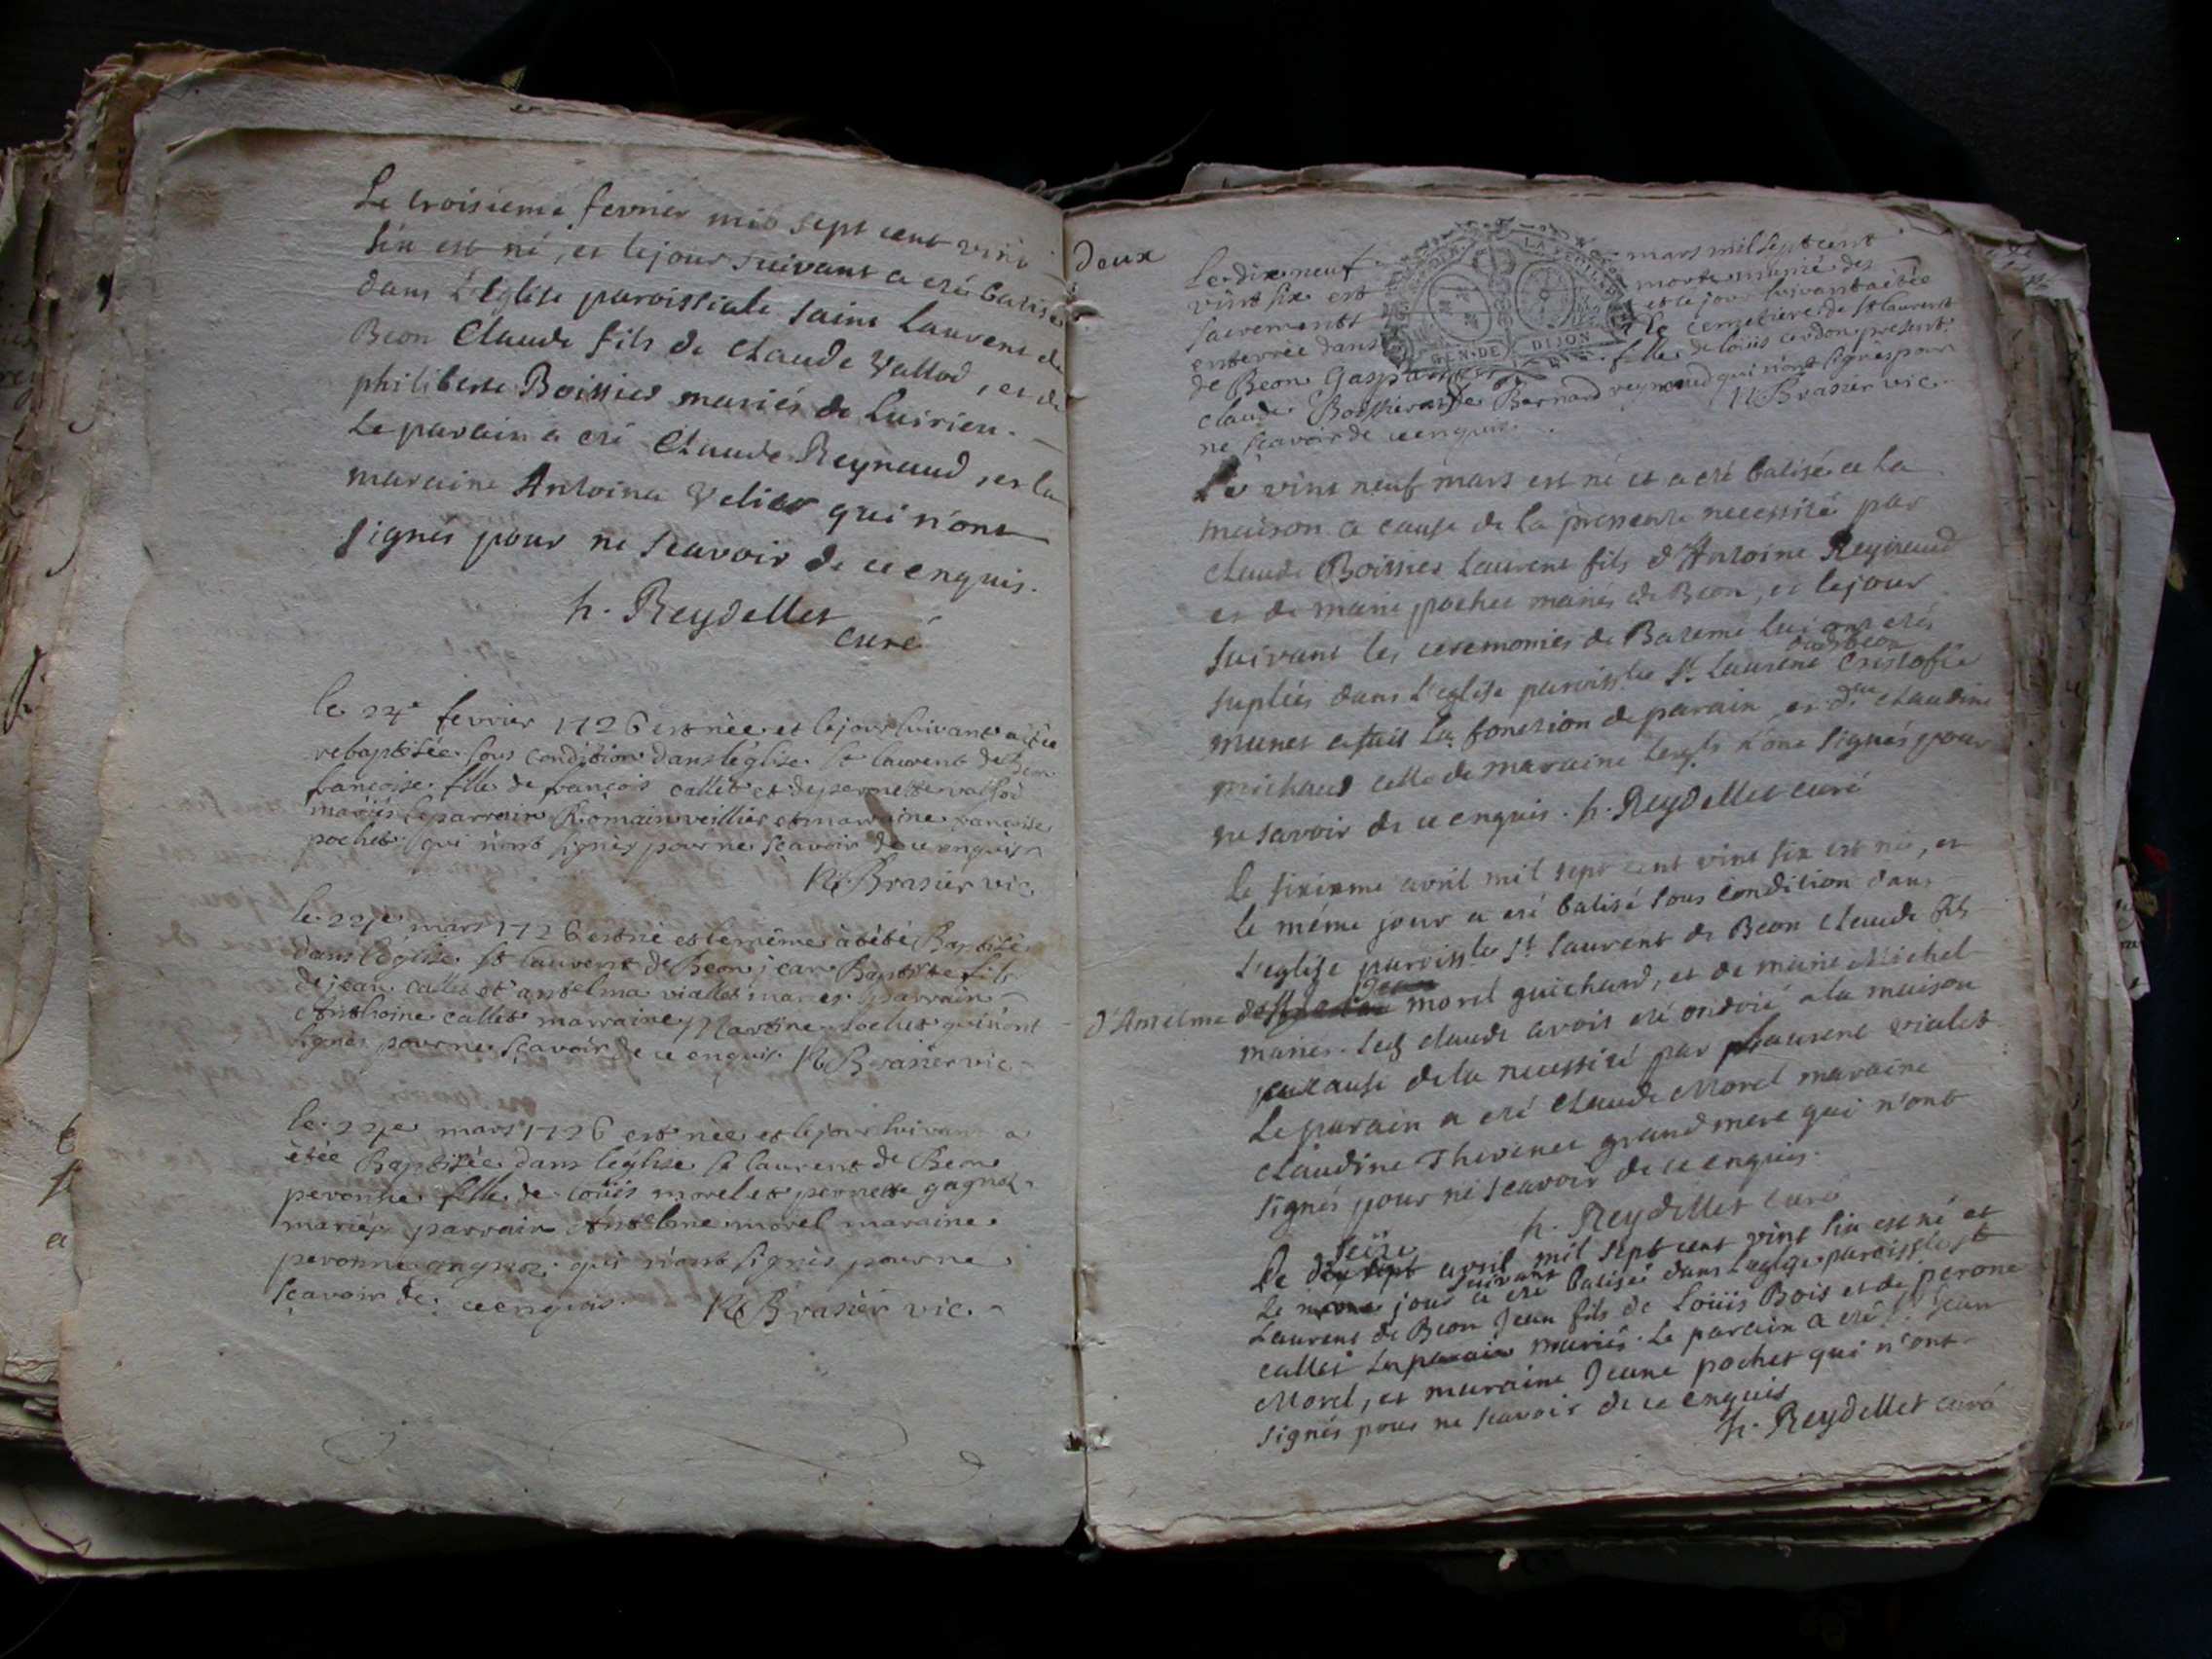 Le troisieme fevrier mil sept cent vint
six est né, et le jour suivant a eté batisé
dans l'Eglise paroissiale saint Laurent de
Beon Claude fils de Claude Vallod, et de
philiberte Boissier mariés de Luirieu.
Le parain a eté Claude Reynaud, et la
maraine Antoina Velier qui n'ont
signés pour ne scavoir de ce enquis.
h. Reydellet
curé
le 24e fevrier 1726 est née et le jour suivant a étée
rebaptisée sous condition dans léglise St laurent de Beon
françoise fille de françois callet et de pernette vallod
mariés le parrain Romain veillier et marraine françoise
pochet qui n'ont signés pour ne scavoir de ce enquis
N Brasier vic.
le 22e mars 1726 est né et le même a été Baptisé
dans léglise St laurent de Beon jean Baptiste fils
de jean callet et anselma viallet mariés parrain
Anthoine callet marraine Martine pochet qui n'ont
signés pour ne scavoir de ce enquis N Brasier vic
le 22e mars 1726 est née et le jour suivant a
étée Baptisée dans léglise St laurent de Beon
peronne fille de loüis morel et pernette gagnoz
mariés parrain Anselme morel maraine
peronne qui n'ont signés pour ne
scavoir de ce enquis. N Brasier vic.
deux
GEN·DE DIJON
Le dix neuf mars mil sept cent
vint six est morte munie des
sacrements et le jour suivant a étée
enterrée dans le cemetiere de St laurent
de Beon Gasparde fille de loüis cerdon present
claude Boissier et Bernard reynaud qui n'ont signés pour
ne scavoir de ce enquis. N Brasier vic.
Le vint neuf mars est né et a eté batisé a la
maison a cause de la pressente necessité par
Claude Boissier Laurent fils d'Antoine Reynaud
et de marie pochet mariés de Beon, et le jour
suivant les ceremonies de Bateme lui ont etés
dudit Beon
suplées dans l'eglise paroissle St Laurent Cristofle
munet a fait la fonction de parain et dlle Claudine
michaud celle de maraine lesqls n'ont signés pour
ne savoir de ce enquis. h. Reydellet curé
Le sixieme avril mil sept cent vint six est né, et
le même jour a eté batisé sous condition dans
L'eglise paroissle St Laurent de Beon Claude fils
d'Anselme morel guichard, et de marie Michel
mariés. Led Claude avoit eté ondoié a la maison
a cause de la necessité par Laurent vialet
Le parain a eté Claude Morel maraine
Claudine Thevenet grand mere qui n'ont
signés pour ne scavoir de ce enquis.
h. Reydellet curé
seize
Le dix sept avril mil sept cent vint six est né et
suivant
le meme jour a eté batisé dans l'eglise paroissle St
Laurent de Beon Jean fils de Loüis Bois et de perone
callet Le parain mariés. Le parain a eté Jean
Morel, et maraine Jeane pochet qui n'ont
signés pour ne scavoir de ce enquis
h. Reydellet curé